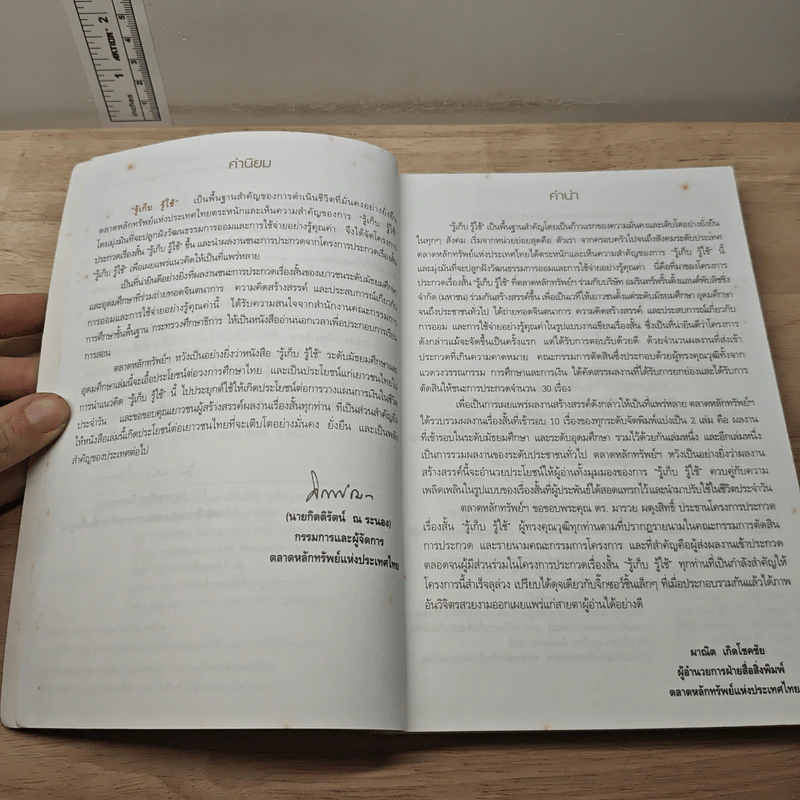 2
AKTION
1
inches
คำนิยม
"รู้เก็บ รู้ใช้" เป็นพื้นฐานสำคัญของการดำเนินชีวิตที่มั่นคงอย่างยั่งยืน
ตลาดหลักทรัพย์แห่งประเทศไทยตระหนักและเห็นความสำคัญของการ "รู้เก็บ รู้ใช้"
โดยมุ่งมั่นที่จะปลูกฝังวัฒนธรรมการออมและการใช้จ่ายอย่างรู้คุณค่า จึงได้จัดโครงการ
ประกวดเรื่องสั้น "รู้เก็บ รู้ใช้" ขึ้น และนำผลงานชนะการประกวดจากโครงการประกวดเรื่องสั้น
"รู้เก็บ รู้ใช้" เพื่อเผยแพร่แนวคิดให้เป็นที่แพร่หลาย
เป็นที่น่ายินดีอย่างยิ่งที่ผลงานชนะการประกวดเรื่องสั้นของเยาวชนระดับมัธยมศึกษา
และอุดมศึกษาที่ร่วมถ่ายทอดจินตนาการ ความคิดสร้างสรรค์ และประสบการณ์เกี่ยวกับ
การออมและการใช้จ่ายอย่างรู้คุณค่านี้ ได้รับความสนใจจากสำนักงานคณะกรรมการ
การศึกษาขั้นพื้นฐาน กระทรวงศึกษาธิการ ให้เป็นหนังสืออ่านนอกเวลาเพื่อประกอบการเรียน
การสอน
ตลาดหลักทรัพย์ฯ หวังเป็นอย่างยิ่งว่าหนังสือ "รู้เก็บ รู้ใช้" ระดับมัธยมศึกษาและ
อุดมศึกษาเล่มนี้จะเอื้อประโยชน์ต่อวงการศึกษาไทย และเป็นประโยชน์แก่เยาวชนไทยใน
การนำแนวคิด "รู้เก็บ รู้ใช้" นี้ ไปประยุกต์ใช้ให้เกิดประโยชน์ต่อการวางแผนการเงินในชีวิต
ประจำวัน และขอขอบคุณเยาวชนผู้สร้างสรรค์ผลงานเรื่องสั้นทุกท่าน ที่เป็นส่วนสำคัญยิ่ง
ให้หนังสือเล่มนี้เกิดประโยชน์ต่อเยาวชนไทยที่จะเติบโตอย่างมั่นคง ยั่งยืน และเป็นพลัง
สำคัญของประเทศต่อไป
(นายกิตติรัตน์ ณ ระนอง)
กรรมการและผู้จัดการ
ตลาดหลักทรัพย์แห่งประเทศไทย
คำนำ
"รู้เก็บ รู้ใช้" เป็นพื้นฐานสำคัญโดยเป็นก้าวแรกของความมั่นคงและเติบโตอย่างยั่งยืน
ในทุกๆ สังคม เริ่มจากหน่วยย่อยสุดคือ ตัวเรา จากครอบครัวไปจนถึงสังคมระดับประเทศ
ตลาดหลักทรัพย์แห่งประเทศไทยได้ตระหนักและเห็นความสำคัญของการ "รู้เก็บ รู้ใช้" นี้
และมุ่งมั่นที่จะปลูกฝังวัฒนธรรมการออมและการใช้จ่ายอย่างรู้คุณค่า นี่คือที่มาของโครงการ
ประกวดเรื่องสั้น "รู้เก็บ รู้ใช้" ที่ตลาดหลักทรัพย์ฯ ร่วมกับบริษัท อมรินทร์พริ้นติ้งแอนด์พับลิชชิ่ง
จำกัด (มหาชน) ร่วมกันสร้างสรรค์ขึ้น เพื่อเป็นเวทีให้เยาวชนตั้งแต่ระดับมัธยมศึกษา อุดมศึกษา
จนถึงประชาชนทั่วไป ได้ถ่ายทอดจินตนาการ ความคิดสร้างสรรค์ และประสบการณ์เกี่ยวกับ
การออม และการใช้จ่ายอย่างรู้คุณค่าในรูปแบบงานเขียนเรื่องสั้น ซึ่งเป็นที่น่ายินดีว่าโครงการ
ดังกล่าวแม้จะจัดขึ้นเป็นครั้งแรก แต่ได้รับการตอบรับด้วยดี ด้วยจำนวนผลงานที่ส่งเข้า
ประกวดที่เกินความคาดหมาย คณะกรรมการตัดสินซึ่งประกอบด้วยผู้ทรงคุณวุฒิทั้งจาก
แวดวงวรรณกรรม การศึกษาและการเงิน ได้คัดสรรผลงานที่ได้รับการยกย่องและได้รับการ
ตัดสินให้ชนะการประกวดจำนวน 30 เรื่อง
เพื่อเป็นการเผยแพร่ผลงานสร้างสรรค์ดังกล่าวให้เป็นที่แพร่หลาย ตลาดหลักทรัพย์ฯ
ได้รวบรวมผลงานเรื่องสั้นที่เข้ารอบ 10 เรื่องของทุกระดับจัดพิมพ์แบ่งเป็น 2 เล่ม คือ ผลงาน
ที่เข้ารอบในระดับมัธยมศึกษา และระดับอุดมศึกษา รวมไว้ด้วยกันเล่มหนึ่ง และอีกเล่มหนึ่ง
เป็นการรวมผลงานของระดับประชาชนทั่วไป ตลาดหลักทรัพย์ฯ หวังเป็นอย่างยิ่งว่าผลงาน
สร้างสรรค์นี้จะอำนวยประโยชน์ให้ผู้อ่านทั้งมุมมองของการ "รู้เก็บ รู้ใช้" ควบคู่กับความ
เพลิดเพลินในรูปแบบของเรื่องสั้นที่ผู้ประพันธ์ได้สอดแทรกไว้และนำมาปรับใช้ในชีวิตประจำวัน
ตลาดหลักทรัพย์ฯ ขอขอบพระคุณ ดร. มารวย ผดุงสิทธิ์ ประธานโครงการประกวด
เรื่องสั้น "รู้เก็บ รู้ใช้" ผู้ทรงคุณวุฒิทุกท่านตามที่ปรากฏรายนามในคณะกรรมการตัดสิน
การประกวด และรายนามคณะกรรมการโครงการ และที่สำคัญคือผู้ส่งผลงานเข้าประกวด
ตลอดจนผู้มีส่วนร่วมในโครงการประกวดเรื่องสั้น "รู้เก็บ รู้ใช้" ทุกท่านที่เป็นกำลังสำคัญให้
โครงการนี้สำเร็จลุล่วง เปรียบได้ดุจเดียวกับจิ๊กซอว์ชิ้นเล็กๆ ที่เมื่อประกอบรวมกันแล้วได้ภาพ
อันวิจิตรสวยงามออกเผยแพร่แก่สายตาผู้อ่านได้อย่างดี
ผาณิต เกิดโชคชัย
ผู้อำนวยการฝ่ายสื่อสิ่งพิมพ์
ตลาดหลักทรัพย์แห่งประเทศไทย